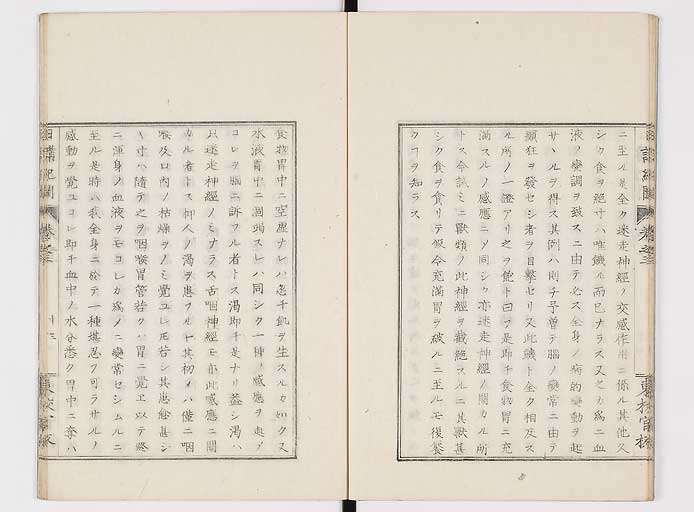 ニ至ル是全ク迷走神經ノ交感作用ニ係ル其他久
シク食ヲ絕寸ハ唯饑ルノミナラス又之カ爲ニ血
液ノ變調ヲ致スニ由テ必ス全身ノ病的變動ヲ起
サヽルヲ得ス其例ハ則チ予曽テ腦ノ變常ニ由テ
顚狂ヲ發セシ者ヲ目擊セリ又此饑ト全ク相反ス
ル所ノ一證アリ之ヲ飽ト曰フ是即チ食物胃ニ充
滿スルノ感應ニノ同シク亦迷走神經ノ關カル所
トス今試ミニ獸類ノ此神經ヲ截絕スルニ其獸甚
シク食ヲ貪リテ假令充滿胃ヲ破ルニ至ルモ復餐
フヿヲ知ラス
食物胃中ニ空虛ナレハ忽チ飢ヲ生スルカ如クス
水液胃中ニ涸竭スレハ同シク一種ノ感應ヲ起ノ
コレヲ腦ニ訴フル者トス渴即チ是ナリ蓋シ渴ハ
只迷走神經ノミナラス舌咽神經モ亦此感應ニ關
カル者トス抑人ノ渴ヲ患フルヤ其初メハ僅ニ咽
喉及口內ノ枯燥ヲノミ覺ユレ𪜈若シ其患愈甚シ
キ寸ハ隨テ之ヲ咽喉胃管若クハ胃ニ覺エ以テ終
ニ渾身ノ血液ヲモコレカ爲ノニ變常セシムルニ
至ル是時ハ我全身ニ於テ一種堪忍フ可ラサルノ
感動ヲ覺ユコレ即チ血中ノ水分悉ク胃中ニ奪ハ